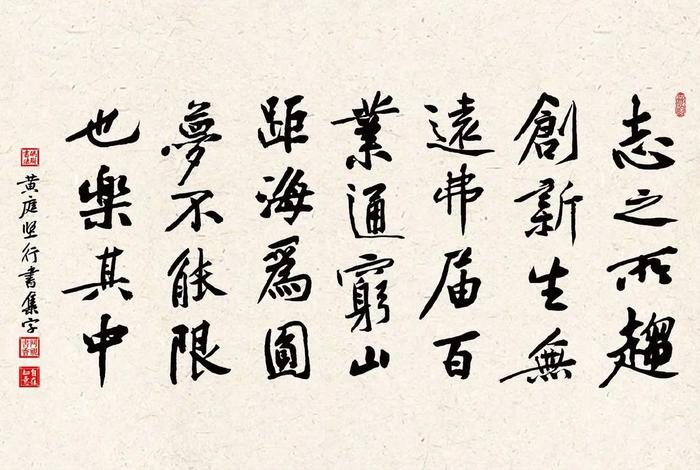 志之所趨
創新生無
遠弗届百
業通窮山
距海爲圓
夢不能限
也樂其中
黄庭坚行書集字